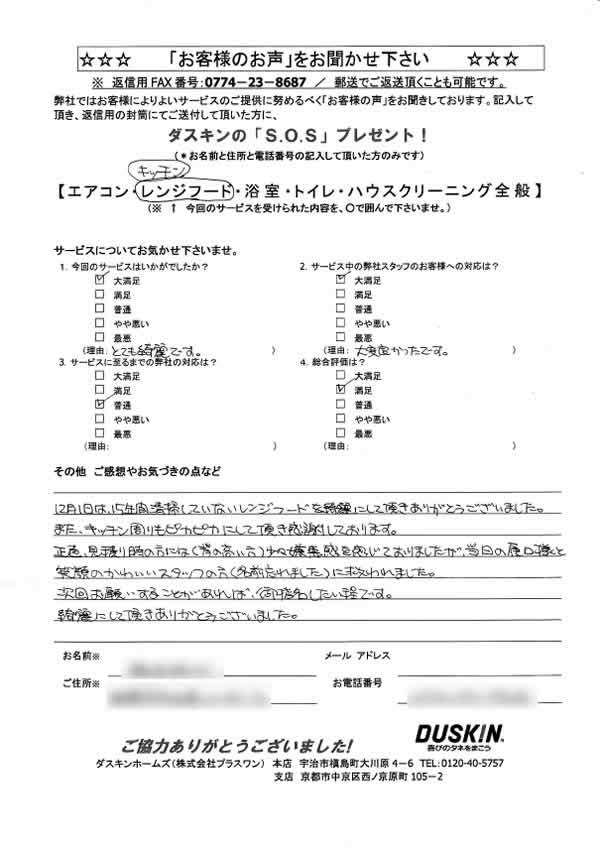 ☆☆☆ 「お客様のお声」をお聞かせ下さい ☆☆☆
※ 返信用FAX番号:0774-23-8687 / 郵送でご返送頂くことも可能です。
弊社ではお客様によりよいサービスのご提供に努めるべく「お客様の声」をお聞きしております。記入して
頂き、返信用の封筒にてご送付して頂いた方に、
ダスキンの「S.O.S」プレゼント!
(*お名前と住所と電話番号の記入して頂いた方のみです)
キッチン
【エアコン・レンジフード・浴室・トイレ・ハウスクリーニング全般】
(※ ↑ 今回のサービスを受けられた内容を、○で囲んで下さいませ。)
サービスについてお気かせ下さいませ。
1. 今回のサービスはいかがでしたか?
☑ 大満足
□ 満足
□ 普通
□ やや悪い
□ 最悪
(理由: とても綺麗です。 )
2. サービス中の弊社スタッフのお客様への対応は?
☑ 大満足
□ 満足
□ 普通
□ やや悪い
□ 最悪
(理由: 大変良かったです。 )
3. サービスに至るまでの弊社の対応は?
□ 大満足
□ 満足
☑ 普通
□ やや悪い
□ 最悪
(理由: )
4. 総合評価は?
□ 大満足
☑ 満足
□ 普通
□ やや悪い
□ 最悪
(理由: )
その他 ご感想やお気づきの点など
12月1日は、15年間清掃していないレンジフードを綺麗にして頂きありがとうございました。
また、キッチン周りもピカピカにして頂き感謝しております。
正直、見積り時の方には(背の高い方)少々嫌悪感を感じておりましたが、当日の
笑顔のかわいいスタッフの方(名前忘れました)に救われました。
次回お願いすることがあれば、御指名したい程です。
綺麗にして頂きありがとうございました。
お名前※
メール アドレス
ご住所※
お電話番号
ご協力ありがとうございました!
DUSKIN
喜びのタネをまこう
ダスキンホームズ(株式会社プラスワン) 本店 宇治市槇島町大川原4-6 TEL:0120-40-5757
支店 京都市中京区西ノ京原町105-2